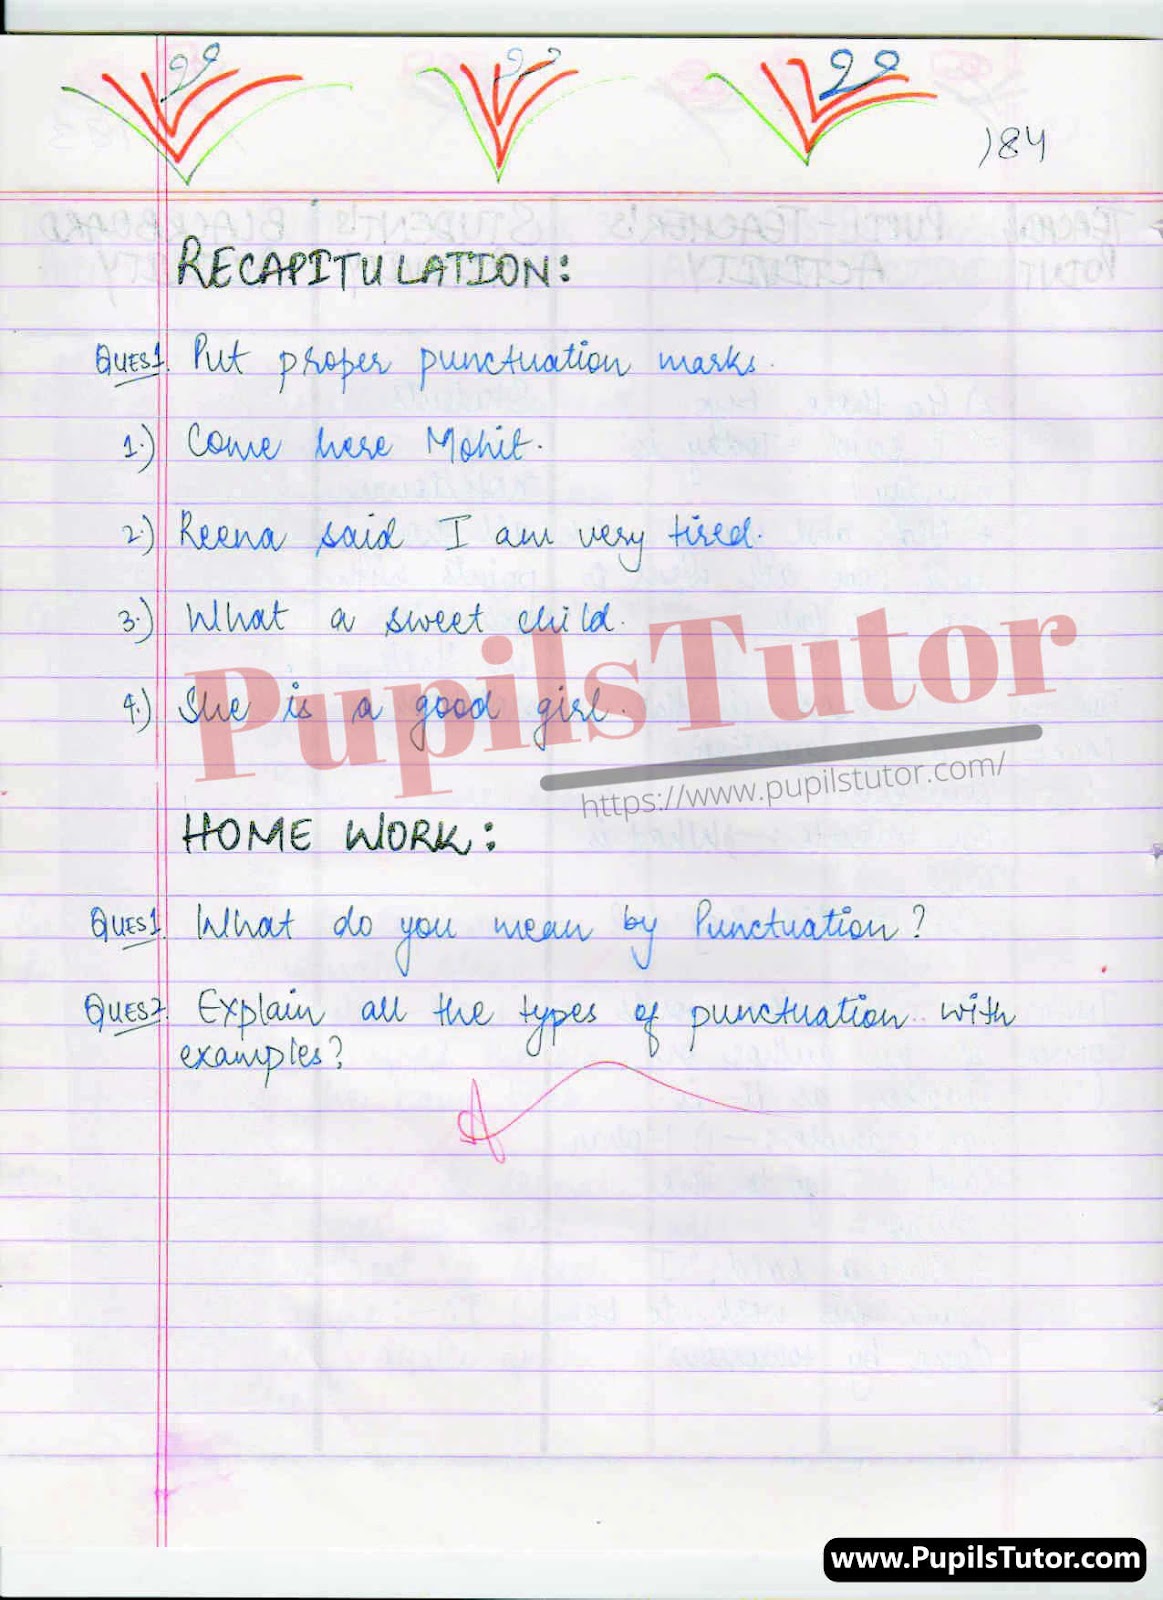 184
RECAPITULATION:
QUES1. Put proper punctuation marks.
1.) Come here Mohit.
2.) Reena said I am very tired.
3.) What a sweet child.
4.) She is a good girl.
PupilsTutor
https://www.pupilstutor.com/
HOME WORK:
QUES1. What do you mean by Punctuation?
QUES2. Explain all the types of punctuation with
examples?
www.PupilsTutor.com